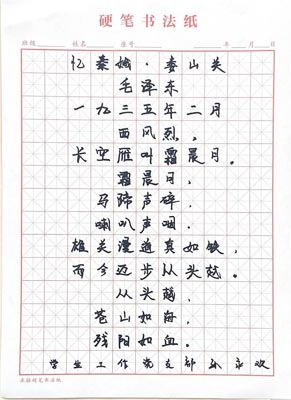 硬笔书法纸
班级 姓名 座号 年 月 日
忆秦娥·娄山关
毛泽东
一九三五年二月
西风烈，
长空雁叫霜晨月。
霜晨月，
马蹄声碎，
喇叭声咽。
雄关漫道真如铁，
而今迈步从头越。
从头越，
苍山如海，
残阳如血。
学生工作党支部孙永欢